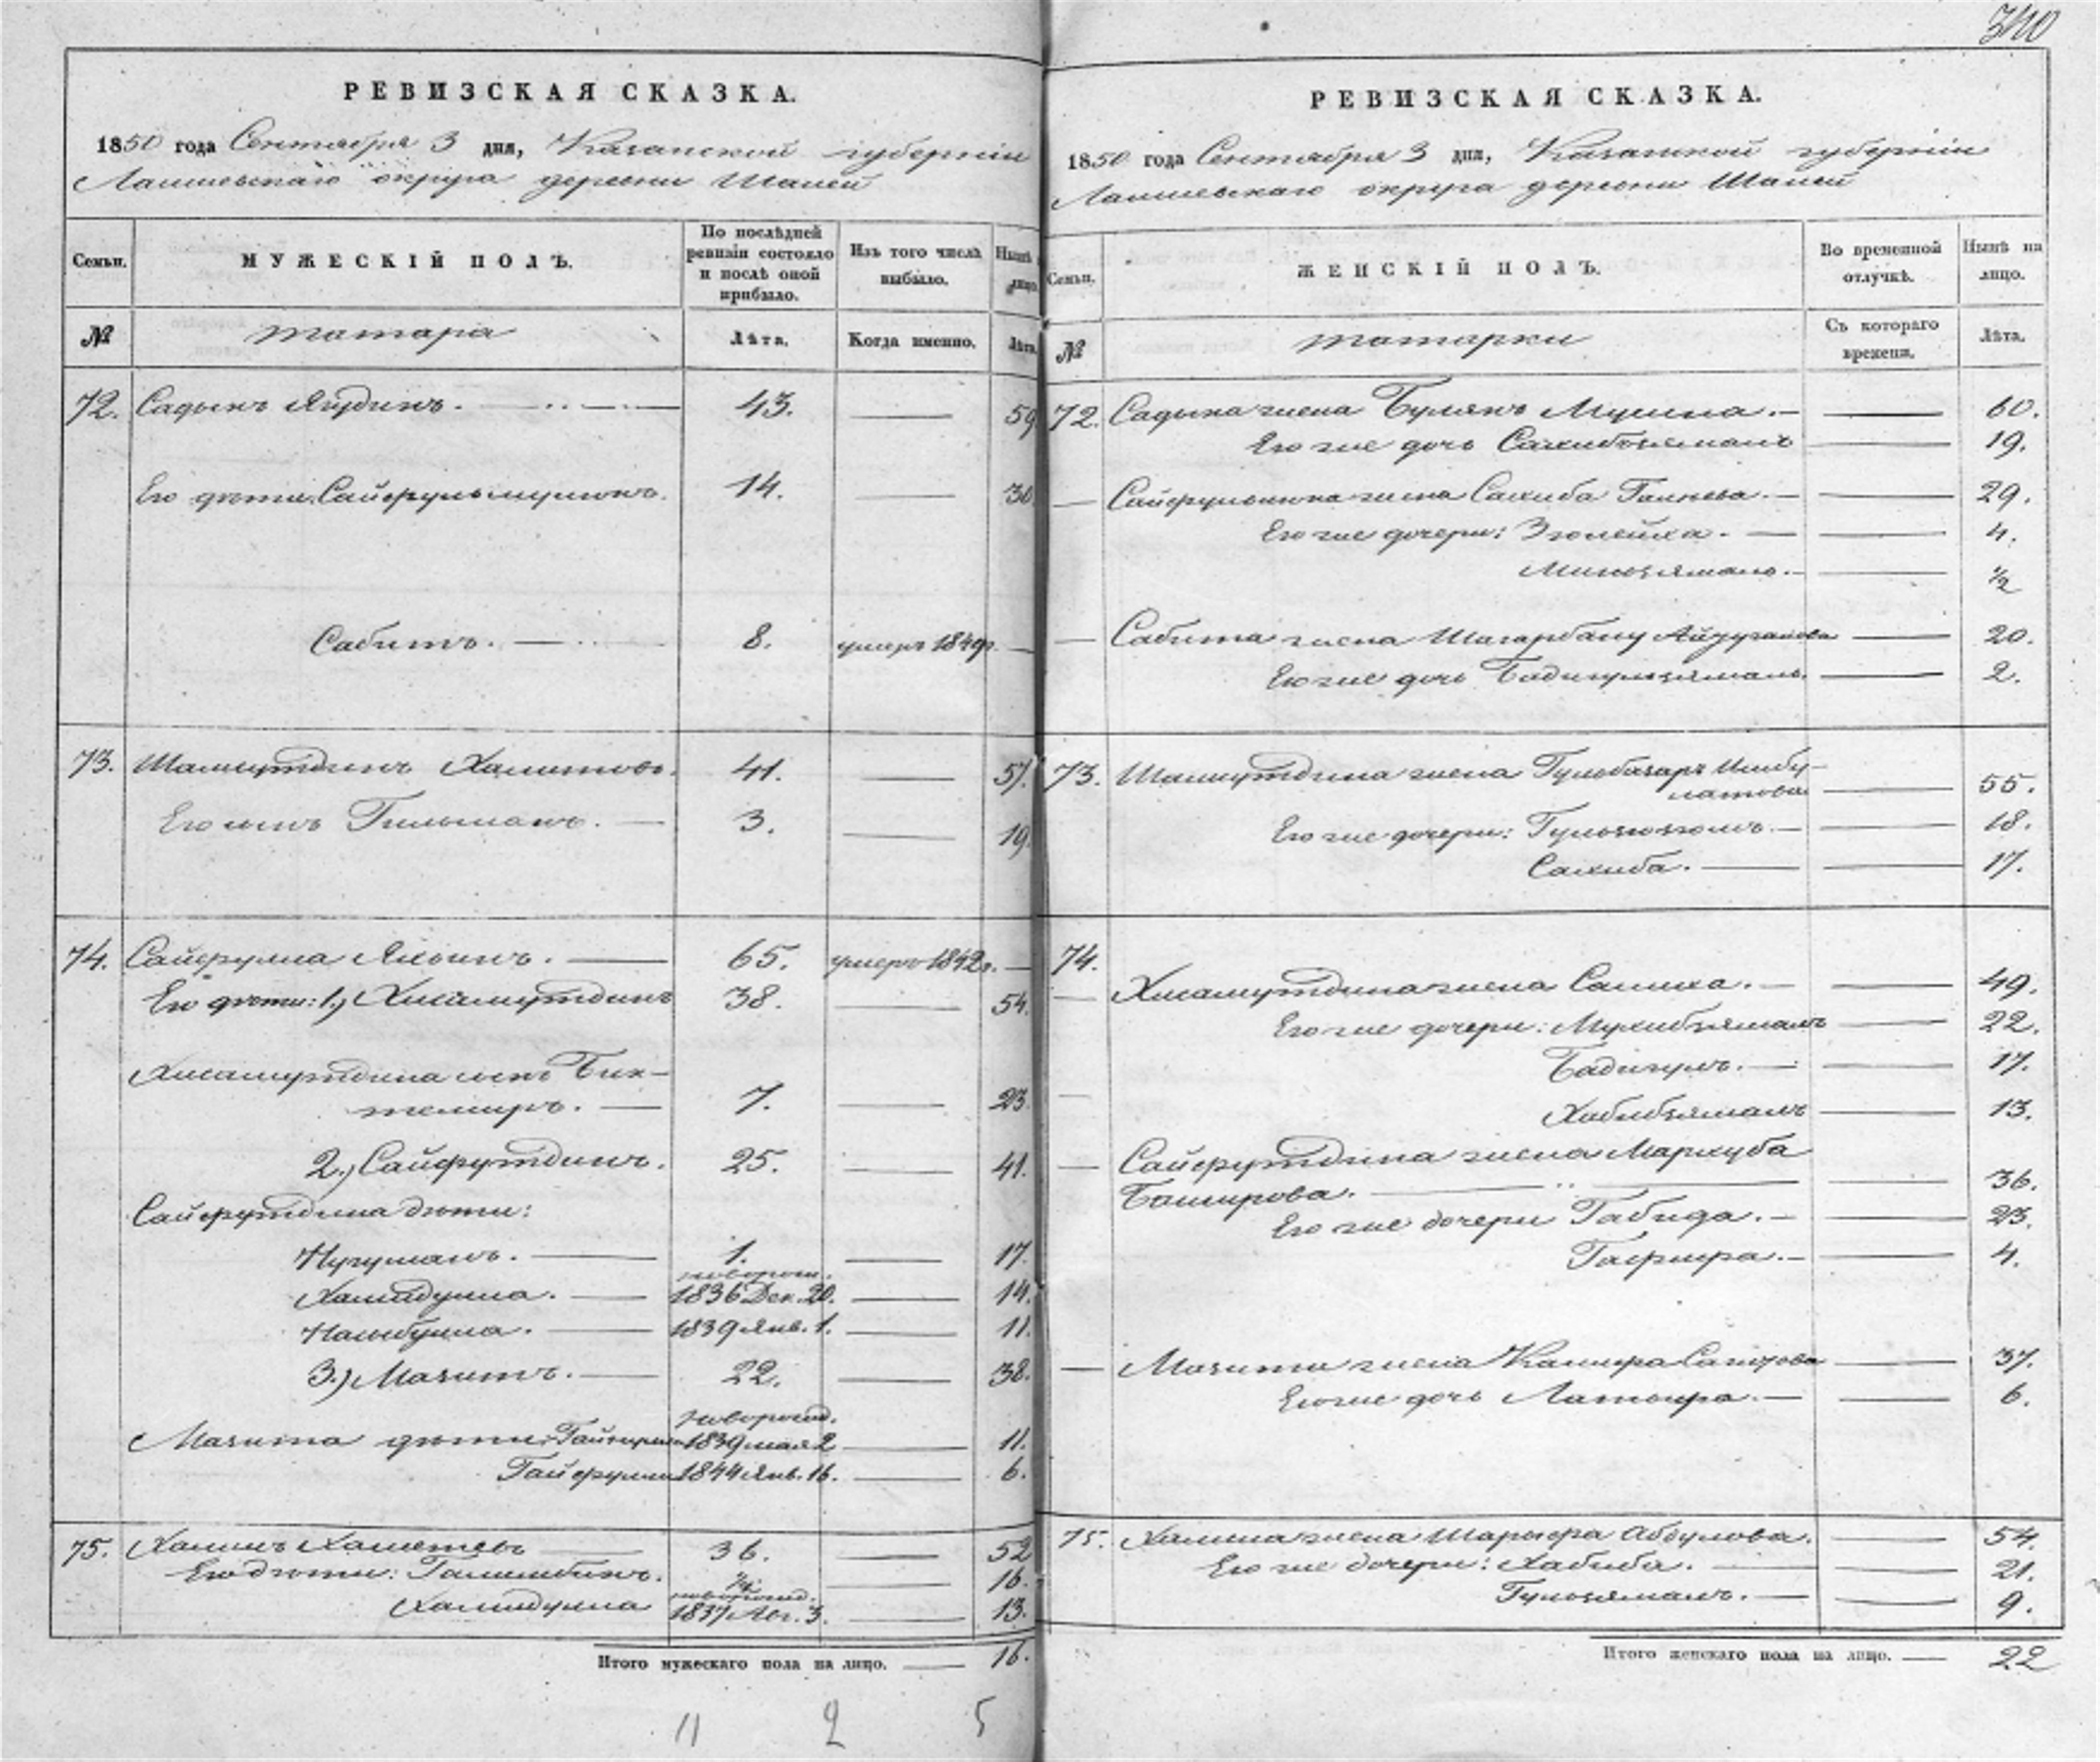 340
РЕВИЗСКАЯ СКАЗКА.
1850 года Сентября 3 дня, Казанской губерніи
Лаишевскаго округа деревни Шапей
Семьи.
МУЖЕСКІЙ ПОЛЪ.
По послѣдней ревизіи состояло и послѣ оной прибыло.
Изъ того числа выбыло.
Нынѣ лицо.
№
татара
Лѣта.
Когда именно.
Лѣта.
72. Садыкъ Ягудинъ. 43. 59
Его дѣти: Сайфульмулюкъ. 14. 30
Сабитъ. 8. умеръ 1849г.
73. Шамсутдинъ Хамитовъ. 41. 57.
Его сынъ Гильманъ. 3. 19.
74. Сайфулла Яхъинъ. 65. умеръ 1842г.
Его дѣти: 1.) Хисамутдинъ 38. 54.
Хисамутдина сынъ Бик-
темиръ. 7. 23
2.) Сайфутдинъ. 25. 41.
Сайфутдина дѣти:
Нугуманъ. 1. 17.
новорож.
Хамидулла. 1836 Дек. 20. 14.
Насыбулла. 1839 Янв. 1. 11.
3.) Мазитъ. 22. 38.
новорожд.
Мазита дѣти: 1839 мая 2 11.
Гайфулла 1844 Янв. 16. 6.
75. Халитъ Хаметевъ 36. 52
Его дѣти: 16.
новорожд.
Хамидулла 1837 Авг. 3. 13.
Итого мужескаго пола на лицо. 16.
11 2 5
РЕВИЗСКАЯ СКАЗКА.
1850 года Сентября 3 дня, Казанской губерніи
Лаишевскаго округа деревни Шапей
Семьи.
ЖЕНСКІЙ ПОЛЪ.
Во временной отлучкѣ.
Нынѣ на лицо.
№
татарки
Съ котораго времени.
Лѣта.
72. Садыка жена Булякъ Мусина. 60.
Его же дочь Сахибзяманъ 19.
Сайфульмюка жена Сахиба Галеева. 29.
Его же дочери: Зюлейха. 4.
Минзямалъ. 1/2
Сабита жена Шагарбану 20.
Его же дочь Бадигульзямалъ. 2.
73. Шамсутдина жена Гульбахаръ Ишбу-
латова 55.
Его же дочери: 18.
Сахиба. 17.
74.
Хисамутдина жена Салиха. 49.
Его же дочери: Мухибзямалъ 22.
Бадигулъ. 17.
Хабибзямалъ 13.
Сайфутдина жена Мархуба
Баширова. 36.
Его же дочери Габида. 23.
Гафира. 4.
Мазита жена Камира 37.
Его же дочь Латыфа. 6.
75. Халита жена Шарифа Абдулова. 54.
Его же дочери: Хабиба. 21.
Гульзямалъ. 9.
Итого женскаго пола на лицо. 22